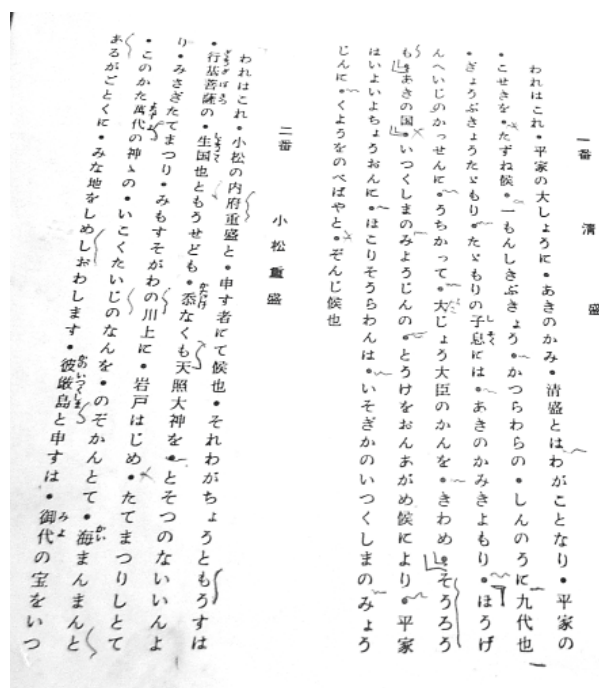 一番　清盛
われはこれ・平家の大しょうに・あきのかみ・清盛とはわがことなり・平家の
・こせきを・たずね候・一もんしきぶきょう・かつらわらの・しんのうに九代也
・ぎょうぶきょうたゞもり・たゞもりの子息には・あきのかみきよもり・ほうげ
んへいじのかっせんに・うちかって・大じょう大臣のかんを・きわめ・そうろう
も・あきの国・いつくしまのみょうじんの・とうけをおんあがめ候により・平家
はいよいよちょうおんに・ほこりそうらわんは・いそぎかのいつくしまのみょう
じんに・くようをのべばやと・ぞんじ候也
二番　小松重盛
われはこれ・小松の内府重盛と・申す者にて候也・それわがちょうともうすは
・行基菩薩の・生国也ともうせども・忝なくも天照大神を・とそつのないいんよ
り・みさぎたてまつり・みもすそがわの川上に・岩戸はじめ・たてまつりしとて
・このかた萬代の神ゝの・いこくたいじのなんを・のぞかんとて・海まんまんと
あるがごとくに・みな地をしめしおわします・彼厳島と申すは・御代の宝をいつ